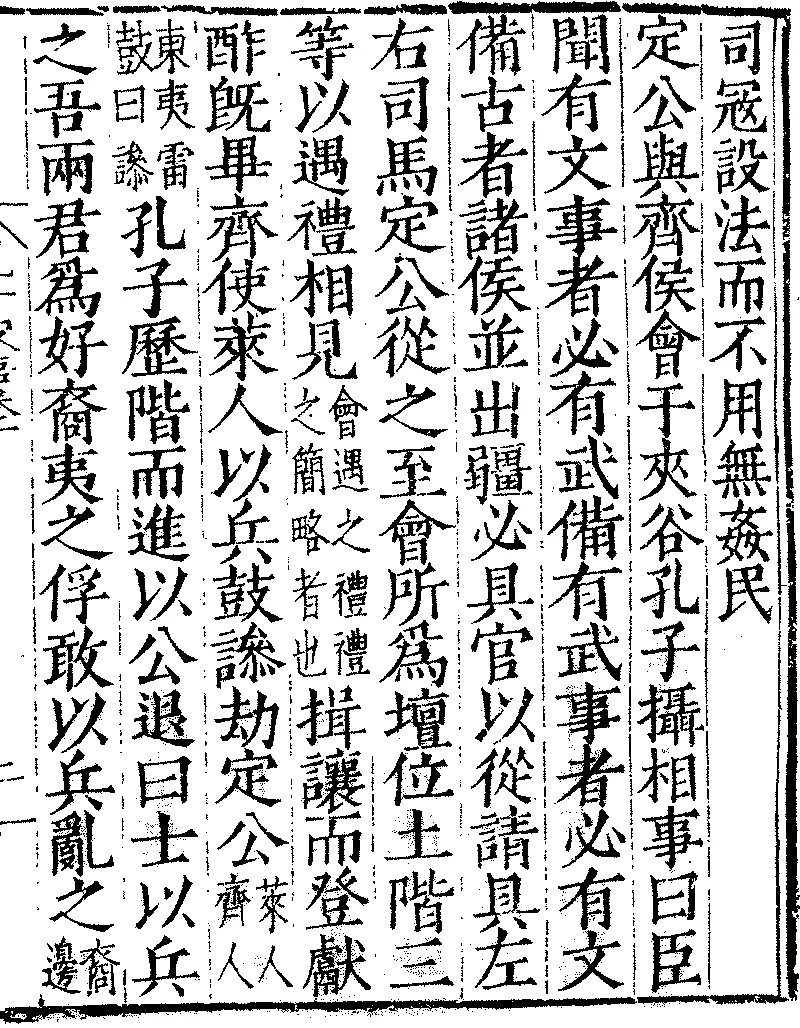 司冦設法而不用無姦民
定公與齊侯會于夾谷孔子攝相事曰臣
聞有文事者必有武備有武事者必有文
備古者諸侯並出疆必具官以從請具左
右司馬定公從之至會所爲壇位土階三
等以遇禮相見會遇之禮禮之簡略者也揖讓而登獻
酢旣畢齊使萊人以兵鼓謲劫定公萊人齊人
東夷雷鼓曰謲孔子歷階而進以公退曰士以兵
之吾兩君爲好裔夷之俘敢以兵亂之裔邊